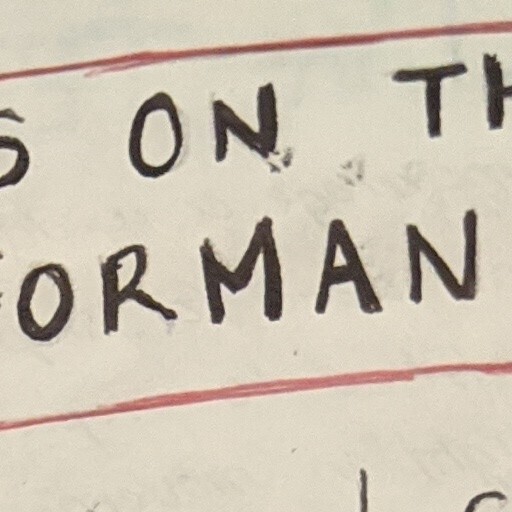 S ON TH
FORMAN